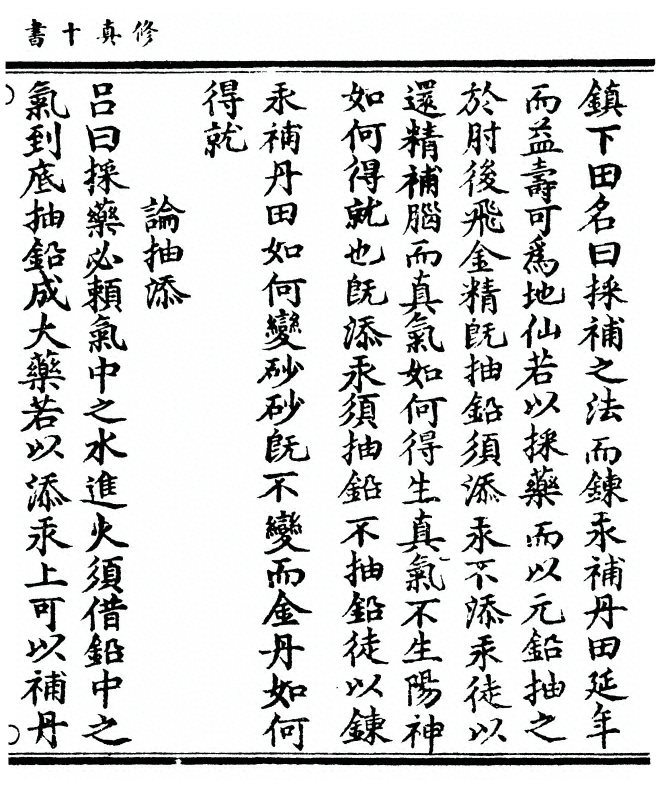 修真十書
鎮下田名曰採補之法而鍊汞補丹田延年
而益壽可爲地仙若以採藥而以元鉛抽之
於肘後飛金精旣抽鉛須添汞不添汞徒以
還精補腦而真氣如何得生真氣不生陽神
如何得就也旣添汞須抽鉛不抽鉛徒以鍊
汞補丹田如何變砂砂旣不變而金丹如何
得就
論抽添
呂曰採藥必賴氣中之水進火須借鉛中之
氣到底抽鉛成大藥若以添汞上可以補丹